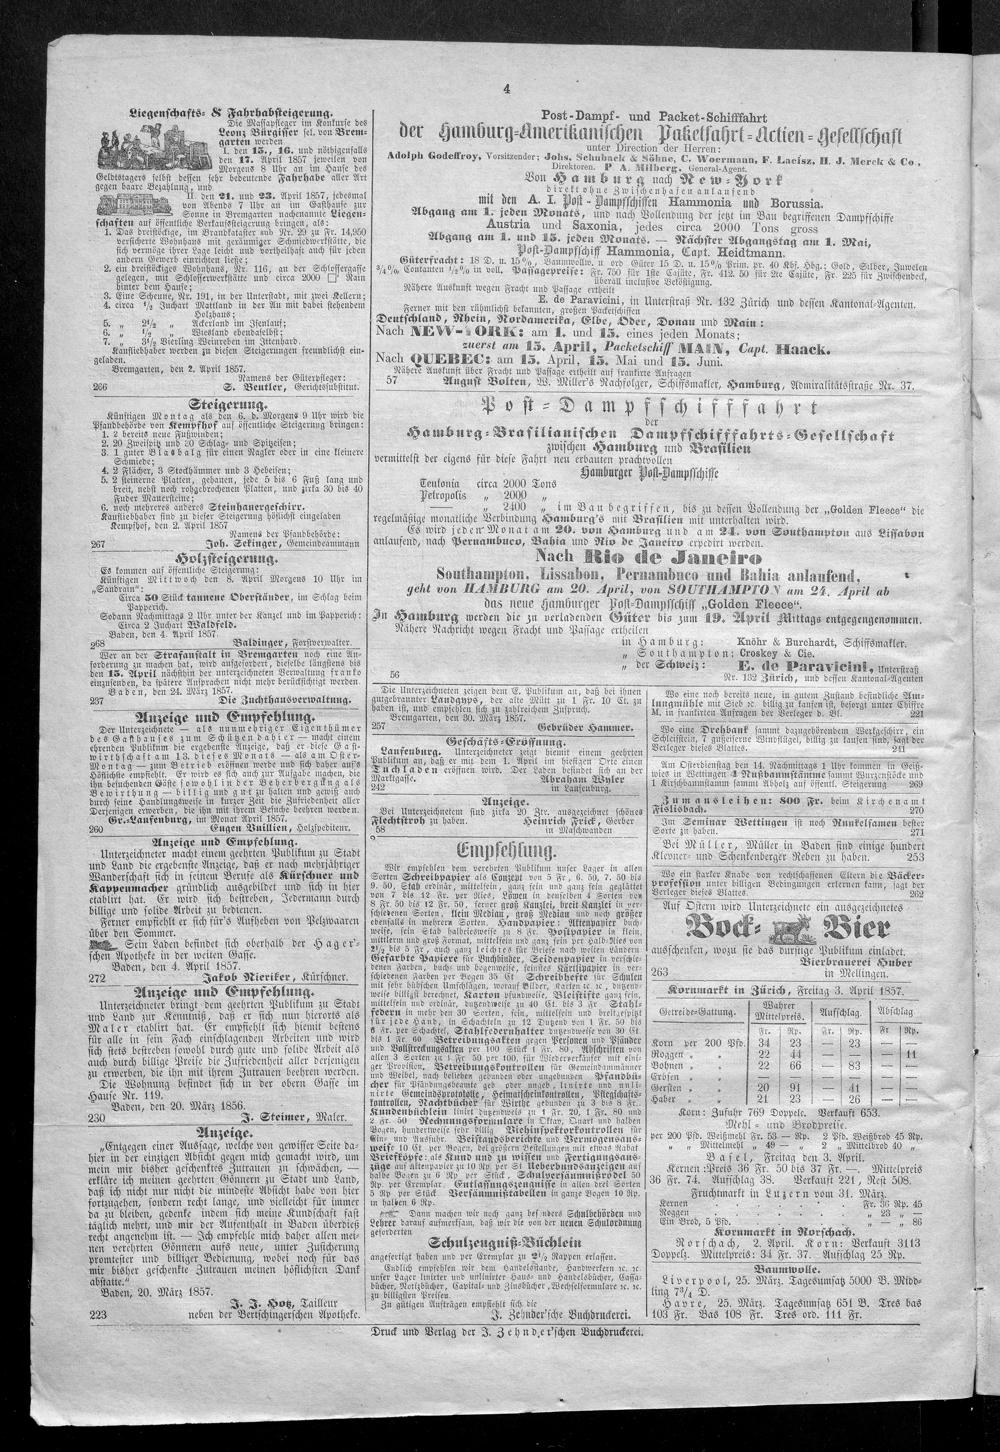 4
Liegenschafts- & Fahrhabsteigerung.
Die Massapfleger im Konkurse des
Leonz Bürgisser sel. von Brem-
garten werden
I. den 15., 16. und nöthigenfalls
den 17. April 1857 jeweilen von
Morgens 8 Uhr an im Hause des
Geldstagers selbst dessen sehr bedeutende Fahrhabe aller Art
gegen baare Bezahlung, und
II. den 21. und 23. April 1857, jedesmal
von Abends 7 Uhr an im Gasthause zur
Sonne in Bremgarten nachgenannte Liegen-
schaften auf öffentliche Verkaufssteigerung bringen, als:
1. Das dreistöckige, im Brandkataster aub Nr. 29 zu Fr. 14,950
versicherte Wohnhaus mit geräumiger Schmiedwerkstätte, die
sich vermöge ihrer Lage leicht und vortheilhaft auch für jeden
andern Gewerb einrichten ließe;
2. ein dreistöckiges Wohnhaus, Nr. 116, an der Schlossergasse
gelegen, mit Schlosserwerkstätte und circa 2000 □' Rain
hinter dem Hause;
3. Eine Scheune, Nr. 191, in der Unterstadt, mit zwei Kellern;
4. circa 1/2 Juchart Mattland in der Au mit dabei stehendem
Holzhaus;
5. „ 2 1/2 „ Ackerland im Isenlauf;
6. „ 1/2 „ Wiesland ebendaselbst;
7. „ 3 1/2 Vierling Weinreben im Ittenhard.
Kaufsliebhaber werden zu diesen Steigerungen freundlichst ein-
geladen.
Bremgarten, den 2. April 1857.
Namens der Güterpfleger:
266 S. Beutler, Gerichtssubstitut.
Steigerung.
Künftigen Montag als den 6. d. Morgens 9 Uhr wird die
Pfandbehörde von Kempfhof auf öffentliche Steigerung bringen:
1. 2 bereits neue Fußwinden;
2. 20 Zweispitz und 20 Schlag- und Spitzeisen;
3. 1 guter Blasbalg für einen Nagler oder in eine kleinere
Schmiede;
4. 2 Flächer, 3 Stockhämmer und 3 Hebeisen;
5. 2 steinerne Platten, gehauen, jede 5 bis 6 Fuß lang und
breit, nebst noch rohgebrochenen Platten, und zirka 30 bis 40
Fuder Mauersteine;
6. noch mehreres anderes Steinhauergeschirr.
Kaufsliebhaber sind zu dieser Steigerung höflichst eingeladen
Kempfhof, den 2. April 1857
Namens der Pfandbehörde:
267 Joh. Sekinger, Gemeindeammann
Holzsteigerung.
Es kommen auf öffentliche Steigerung:
Künftigen Mittwoch den 8. April Morgens 10 Uhr im
„Sandrain“:
Circa 50 Stück tannene Oberständer, im Schlag beim
Papperich.
Sodann Nachmittags 2 Uhr unter der Kanzel und im Papperich:
Circa 2 Juchart Waldfeld.
Baden, den 4. April 1857.
268 Baldinger, Forstverwalter.
Wer an der Strafanstalt in Bremgarten noch eine An-
forderung zu machen hat, wird aufgefordert, dieselbe längstens bis
den 15. April nächsthin der unterzeichneten Verwaltung franko
einzusenden, da spätere Ansprachen nicht mehr berücksichtigt werden.
Baden, den 24. März 1857.
237 Die Zuchthausverwaltung.
Anzeige und Empfehlung.
Der Unterzeichnete — als nunmehriger Eigenthümer
des Gasthauses zum Schützen dahier — macht einem
ehrenden Publikum die ergebenste Anzeige, daß er diese Gast-
wirthschaft am 13. dieses Monats — als am Oster-
Montag — zum Betrieb eröffnen werde und sich daher auf's
Höflichste empfiehlt. Er wird es sich auch zur Aufgabe machen, die
ihn besuchenden Gäste sowohl in der Beherbergung als
Bewirthung — billig und gut zu halten und gewiß auch
durch seine Handlungsweise in kurzer Zeit die Zufriedenheit aller
Derjenigen erwerben, die ihn mit ihrem Besuche beehren werden.
Gr.-Laufenburg, im Monat April 1857.
260 Eugen Vuillien, Holzspediteur.
Anzeige und Empfehlung.
Unterzeichneter macht einem geehrten Publikum zu Stadt
und Land die ergebenste Anzeige, daß er nach mehrjähriger
Wanderschaft sich in seinem Berufe als Kürschner und
Kappenmacher gründlich ausgebildet und sich in hier
etablirt hat. Er wird sich bestreben, Jedermann durch
billige und solide Arbeit zu bedienen.
Ferner empfiehlt er sich für's Aufheben von Pelzwaaren
über den Sommer.
Sein Laden befindet sich oberhalb der Hager'-
schen Apotheke in der weiten Gasse.
Baden, den 4. April 1857.
272 Jakob Rieriker, Kürschner.
Anzeige und Empfehlung.
Unterzeichneter bringt dem geehrten Publikum zu Stadt
und Land zur Kenntniß, daß er sich nun hierorts als
Maler etablirt hat. Er empfiehlt sich hiemit bestens
für alle in sein Fach einschlagenden Arbeiten und wird
sich stets bestreben sowohl durch gute und solide Arbeit als
auch durch billige Preise die Zufriedenheit aller derjenigen
zu erwerben, die ihn mit ihrem Zutrauen beehren werden.
Die Wohnung befindet sich in der obern Gasse im
Hause Nr. 119.
Baden, den 20. März 1856.
230 J. Steimer, Maler.
Anzeige.
„Entgegen einer Aussage, welche von gewisser Seite da-
hier in der einzigen Absicht gegen mich gemacht wird, um
mein mir bisher geschenktes Zutrauen zu schwächen, —
erkläre ich meinen geehrten Gönnern zu Stadt und Land,
daß ich nicht nur nicht die mindeste Absicht habe von hier
fortzugehen, sondern recht lange, und vielleicht für immer
da zu bleiben, gedenke indem sich meine Kundschaft fast
täglich mehrt, und mir der Aufenthalt in Baden überdieß
recht angenehm ist. — Ich empfehle mich daher allen mei-
nen verehrten Gönnern aufs neue, unter Zusicherung
promtester und billiger Bedienung, wobei noch für das
mir bisher geschenkte Zutrauen meinen höflichsten Dank
abstatte.“
Baden, 20. März 1857.
J. J. Hotz, Tailleur
223 neben der Bertschingerschen Apotheke.
Post-Dampf- und Packet-Schifffahrt
der Hamburg-Amerikanischen Paketfahrt-Actien-Gesellschaft
unter Direction der Herren:
Adolph Godeffroy, Vorsitzender; Johs. Schuback & Söhne, C. Woermann, F. Laeisz, H. J. Merck & Co,
Direktoren. P. A. Milberg, General-Agent.
Von Hamburg nach New-York
direkt ohne Zwischenhafen anlaufend
mit den A. I. Post-Dampfschiffen Hammonia und Borussia.
Abgang am 1. jeden Monats, und nach Vollendung der jetzt im Bau begriffenen Dampfschiffe
Austria und Saxonia, jedes circa 2000 Tons gross
Abgang am 1. und 15. jeden Monats. — Nächster Abgangstag am 1. Mai,
Post-Dampfschiff Hammonia, Capt. Heidtmann.
Güterfracht: 18 D. u. 15%, Baumwollw. u ord Güter 15 D. u. 15% Prim. pr. 40 Kbf. Hbg.; Gold, Silber, Juwelen
3/4% Contanten 1/2% in voll. Passagepreise: Fr. 750 für 1ste Cajüte, Fr. 412. 50 für 2te Cajüte, Fr. 225 für Zwischendeck,
überall inclusive Beköstigung.
Nähere Auskunft wegen Fracht und Passage ertheilt
E. de Paravicini, in Unterstraß Nr. 132 Zürich und dessen Kantonal-Agenten.
Ferner mit den rühmlichst bekannten, großen Packetschiffen
Deutschland, Rhein, Nordamerika, Elbe, Oder, Donau und Main:
Nach NEW- ORK: am 1. und 15. eines jeden Monats;
zuerst am 15. April, Packetschiff MAIN, Capt. Haack.
Nach QUEBEC: am 15. April, 15. Mai und 15. Juni.
Nähere Auskunft über Fracht und Passage ertheilt auf frankirte Anfragen
57 August Bolten, W. Miller's Nachfolger, Schiffsmakler, Hamburg, Admiralitätsstraße Nr. 37.
Post-Dampfschifffahrt
der
Hamburg-Brasilianischen Dampfschifffahrts-Gesellschaft
zwischen Hamburg und Brasilien
vermittelst der eigens für diese Fahrt neu erbauten prachtvollen
Hamburger Post-Dampfschiffe
Teutonia circa 2000 Tons
Petropolis „ 2000 „
—— „ 2400 „ im Bau begriffen, bis zu dessen Vollendung der „Golden Fleece“ die
regelmäßige monatliche Verbindung Hamburg's mit Brasilien mit unterhalten wird.
Es wird jeden Monat am 20. von Hamburg und am 24. von Southampton aus Lissabon
anlaufend, nach Pernambuco, Bahia und Rio de Janeiro expedirt werden.
Nach Rio de Janeiro
Southampton, Lissabon, Pernambuco und Bahia anlaufend,
geht von HAMBURG am 20. April, von SOUTHAMPTON am 24. April ab
das neue Hamburger Post-Dampfschiff „Golden Fleece“.
In Hamburg werden die zu verladenden Güter bis zum 19. April Mittags entgegengenommen.
Nähere Nachricht wegen Fracht und Passage ertheilen
in Hamburg: Knöhr & Burchardt, Schiffsmakler.
„ Southampton: Croskey & Cie.
„ der Schweiz: E. de Paravicini, Unterstraß
56 Nr. 132 Zürich, und dessen Kantonal-Agenten
Die Unterzeichneten zeigen dem E. Publikum an, daß bei ihnen
gutgebrannter Landgyps, der alte Mütt zu 1 Fr. 10 Ct. zu
haben ist, und empfehlen sich zu zahlreichem Zuspruch.
Bremgarten, den 30. März 1857.
257 Gebrüder Hammer.
Geschäfts-Eröffnung.
Laufenburg. Unterzeichneter zeigt hiemit einem geehrten
Publikum an, daß er mit dem 1. April im hiesigen Orte einen
Tuchladen eröffnen wird. Der Laden befindet sich an der
Marktgasse. Abraham Wyler
242 in Laufenburg.
Anzeige.
Bei Unterzeichnetem sind zirka 20 Ztr. ausgezeichnet schönes
Flechtstroh zu haben. Heinrich Frick, Gerber
58 in Maschwanden
Empfehlung.
Wir empfehlen dem verehrten Publikum unser Lager in allen
Sorten Schreibpapier als Konzept von 5 Fr., 6. 50, 7. 50 bis
9. 50, Stab ordinär, mittelfein, ganz fein und ganz fein geglättet
von 7 bis 12 Fr. per Ries, Löwen in denselben 4 Sorten von
8 Fr. 50 bis 12 Fr. 50, ferner groß Kanzlei, breit Kanzlei in ver-
schiedenen Sorten, klein Median, groß Median und noch größer
ebenfalls in mehrern Sorten, Handpapier: Aktenpapier buch-
weise, fein Stab halbriesweise zu 8 Fr., Postpapier in klein,
mittlerm und groß Format, mittelfein und ganz fein per halb Ries von
2 1/2 bis 5 Fr., auch ganz leichtes für Briefe nach weiten Ländern.
Gefarbte Papiere für Buchbinder, Seidenpapier in verschie-
denen Farben, buch- und bogenweise, feinstes Kärtlipapier in ver-
schiedenen Farben per Bogen 35 Ct. Schreibhefte für Schulen
mit sehr hübschen Umschlägen, worauf Bilder, Karten ec. ec., dutzend-
weise billigst berechnet, Karton pfundweise, Bleistifte ganz fein,
mittelfein und ordinär, dutzendweise zu 40 Ct. bis 3 Fr. Stahl-
federn in mehr den 30 Sorten, fein, mittelfein und breitgespitzt
für jede Hand, in Schachteln zu 12 Dutzend von 1 Fr. 50 bis
6 Fr. per Schachtel, Stahlfederhalter dutzendweise von 30 Ct.
bis 1 Fr. 60. Betreibungsakten gegen Personen und Pfänder
und Vollstreckungsakten per 100 Stück 1 Fr. 80, Abschriften von
allen 3 Sorten zu 1 Fr. 50 per 100, für Wiederverkäufer mit eini-
ger Provision, Betreibungskontrollen für Gemeindammänner
und Weibel, nach belieben gebunden oder ungebunden Pfandbü-
cher für Pfändungsbeamte geb oder ungeb, linirte und unli-
nirte Gemeindsprotokolle, Heimatscheinkontrollen, Pfleglings-
kontrollen, Nachtbücher für Wirthe gebunden zu 3 bis 8 Fr.
Kundenbüchlein linirt dutzendweis zu 1 Fr. 20, 1 Fr. 80 und
2 Fr. 50 Rechnungsformulare in Oktav, Quart und halben
Bogen, hunderteweise sehr billig Viehinspektorkontrollen für
Ein- und Ausfuhr. Beistandsberichte und Vermögensaus-
weise 10 Ct. per Bogen, bei größern Bestellungen mit etwas Rabat
Briefköpfe: als Kund und zu wissen und Fertigungsaus-
züge auf Aktenpapier zu 10 Rp per St Ueberbundsanzeigen auf
halbe Bogen zu 6 Rp per Stück, Schulversäumnißrodel 50
Rp. per Exemplar, Entlassungszeugnisse in allen drei Sorten
5 Rp per Stück Versäumnißtabellen in ganze Bogen 10 Rp.
in halben 6 Rp.
Dann machen wir noch ganz besonders Schulbehörden und
Lehrer darauf aufmerksam, daß wir die von der neuen Schulordnung
geforderten
Schulzeugniß-Büchlein
angefertigt haben und per Exemplar zu 2 1/2 Rappen erlassen.
Endlich empfehlen wir dem Handelsstande, Handwerkern ec. ec.
unser Lager linirter und unlinirter Haus- und Handelsbücher, Cassa-
bücher, Notizbücher, Capital- und Zinsbücher, Wechselformulare ec. ec.
zu billigsten Preisen.
Zu gütigen Aufträgen empfiehlt sich die
J. Zehnder'sche Buchdruckerei.
Wo eine noch bereits neue, in gutem Zustand befindliche Am-
lungmühle mit Sieb ec. billig zu kaufen ist, besorgt unter Chiffre
M. in frankirten Anfragen der Verleger d. Bl. 221
Wo eine Drehbank sammt dazugehörendem Werkgeschirr, ein
Schleifstein, 7 gußeiserne Windflügel, billig zu kaufen sind, sagt der
Verleger dieses Blattes. 241
Am Osterdienstag den 14. Nachmittags 1 Uhr kommen in Geiß-
wies in Wettingen 4 Nußbaumstämme sammt Wurzenstöcke und
1 Kirschbaumstamm sammt Abholz auf öffentl. Steigerung 269
Zum ausleihen: 800 Fr. beim Kirchenamt
Fislisbach. 270
Im Seminar Wettingen ist noch Runkelsamen bester
Sorte zu haben. 271
Bei Müller, Müller in Baden sind einige hundert
Klevner- und Schenkenberger Reben zu haben. 253
Wo ein starker Knabe von rechtschaffenen Eltern die Bäcker-
profession unter billigen Bedingungen erlernen kann, sagt der
Verleger dieses Blattes. 262
Auf Ostern wird Unterzeichnete ein ausgezeichnetes
Bock-Bier
ausschenken, wozu sie das durstige Publikum einladet.
Bierbrauerei Huber
263 in Mellingen.
Kornmarkt in Zürich, Freitag 3. April 1857.
Getreide-Gattung. Wahrer Mittelpreis. Aufschlag. Abschlag
Fr. Rp. Fr. Rp. Fr Rp.
Korn per 200 Pfd. 34 23 — 23 — —
Roggen „ „ 22 44 — — — 11
Bohnen „ „ 22 66 — 83 — —
Erbsen „ „ — — — — — —
Gersten „ „ 20 91 — 41 — —
Haber „ „ 21 23 — 26 — —
Korn: Zufuhr 769 Doppelc. Verkauft 653.
Mehl- und Brodpreise.
per 200 Pfd. Weißmehl Fr. 53 — Rp. 2 Pfd. Weißbrod 45 Rp.
„ „ Mittelmehl „ 49 — „ 2 „ Mittelbrod 40 „
Basel, Freitag den 3. April.
Kernen: Preis 36 Fr. 50 bis 37 Fr. —. Mittelpreis
36 Fr. 74. Aufschlag 38. Verkauft 221, Rest 508.
Fruchtmarkt in Luzern vom 31. März.
Kernen . . . . . . Fr. 36 Rp. 45
Roggen . . . . . . „ 23 „ —
Ein Brod, 5 Pfd. . . . . „ — „ 86
Kornmarkt in Rorschach.
Rorschach, 2. April. Korn: Verkauft 3113
Doppelz. Mittelpreis: 34 Fr. 37. Aufschlag 25 Rp.
Baumwolle.
Liverpool, 25. März. Tagesumsatz 5000 B. Midd-
ling 7 3/4 D.
Havre, 25. März. Tagesumsatz 651 B. Tres bas
103 Fr. Bas 108 Fr. Tres ord. 111 Fr.
Druck und Verlag der J. Zehnder'schen Buchdruckerei.